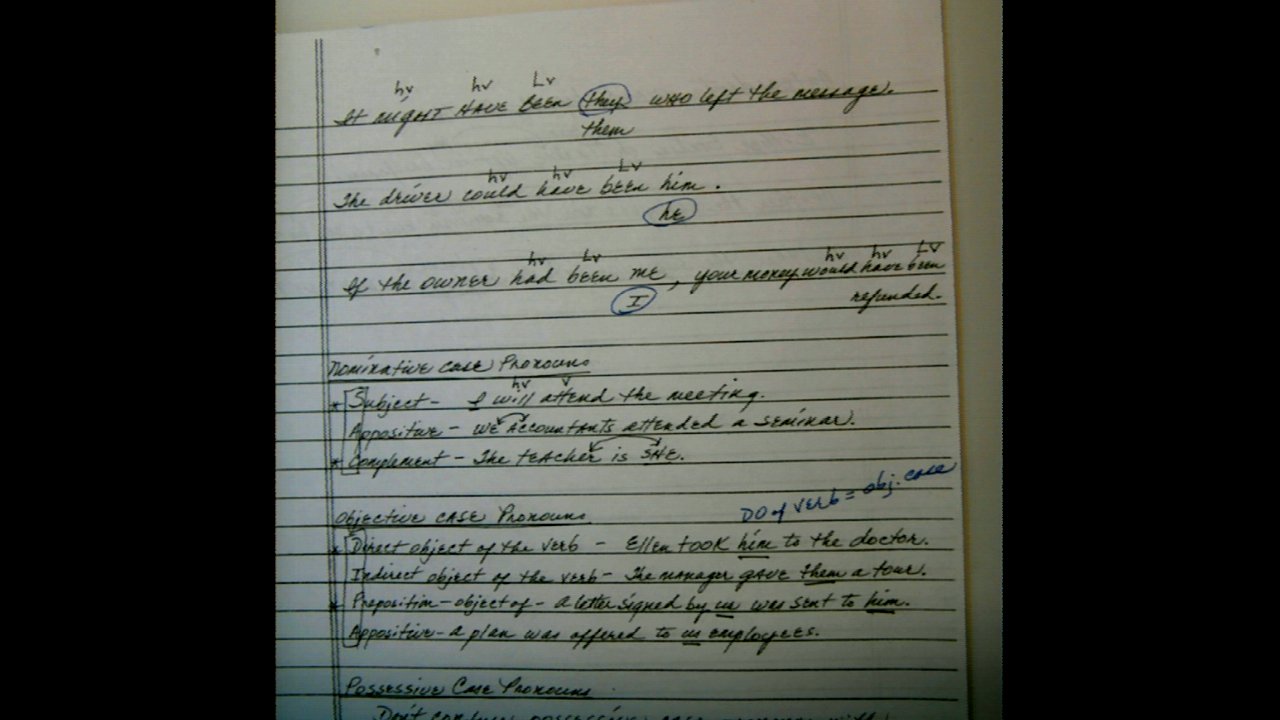 hv hv Lv
It might HAVE BEEn they who left the message.
them
hv hv Lv
The driver could have been him.
he
hv Lv hv hv LV
If the owner had been me, your money would have been
I refunded.
Nominative case Pronouns
hv v
* Subject - I will attend the meeting.
Appositive - we Accountants attended a seminar.
* Complement - The teacher is SHE.
DO of verb = obj. case
Objective case Pronouns
* Direct object of the verb - Ellen took him to the doctor.
Indirect object of the verb - The manager gave them a tour.
* Preposition - object of - a letter signed by us was sent to him.
Appositive - a plan was offered to us employees.
Possessive Case Pronouns
Don't confuse possessive case pronouns with